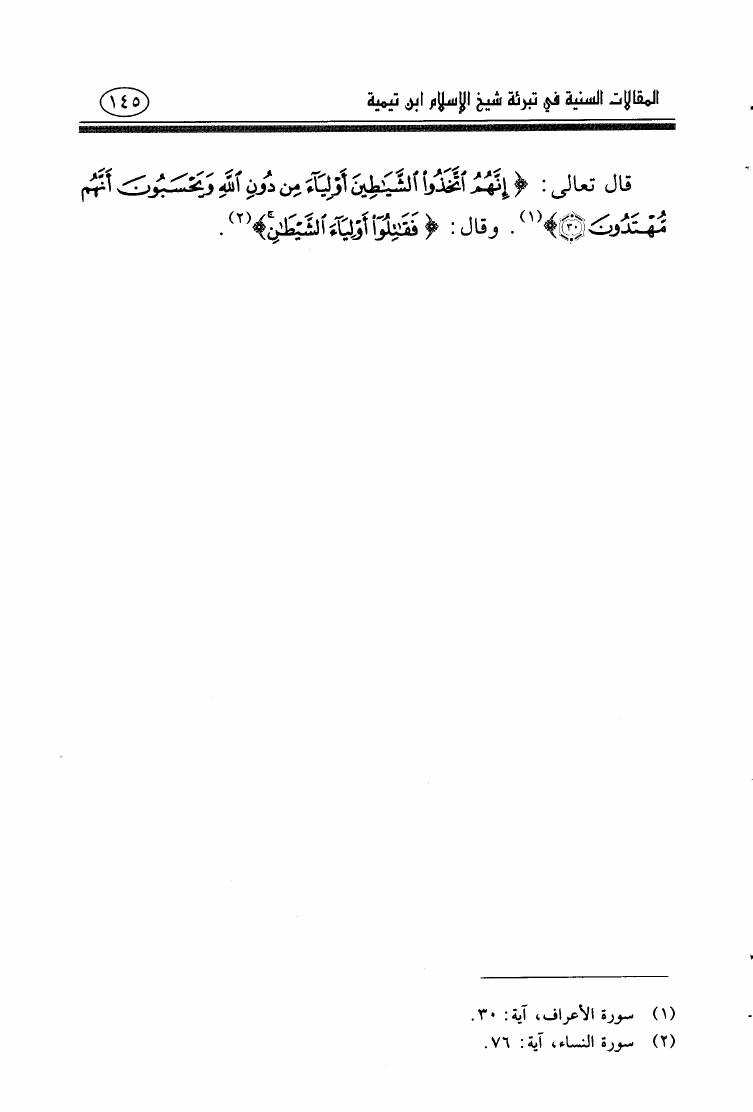 المقالات السنية في تبرئة شيخ الإسلام ابن تيمية ١٤٥
قال تعالى: ﴿ إِنَّهُمُ ٱتَّخَذُوا۟ ٱلشَّيَـٰطِينَ أَوْلِيَآءَ مِن دُونِ ٱللَّهِ وَيَحْسَبُونَ أَنَّهُم
مُّهْتَدُونَ ۝٣٠﴾(١). وقال: ﴿ فَقَـٰتِلُوٓا۟ أَوْلِيَآءَ ٱلشَّيْطَـٰنِ ۖ﴾(٢).
(١) سورة الأعراف، آية: ٣٠.
(٢) سورة النساء، آية: ٧٦.